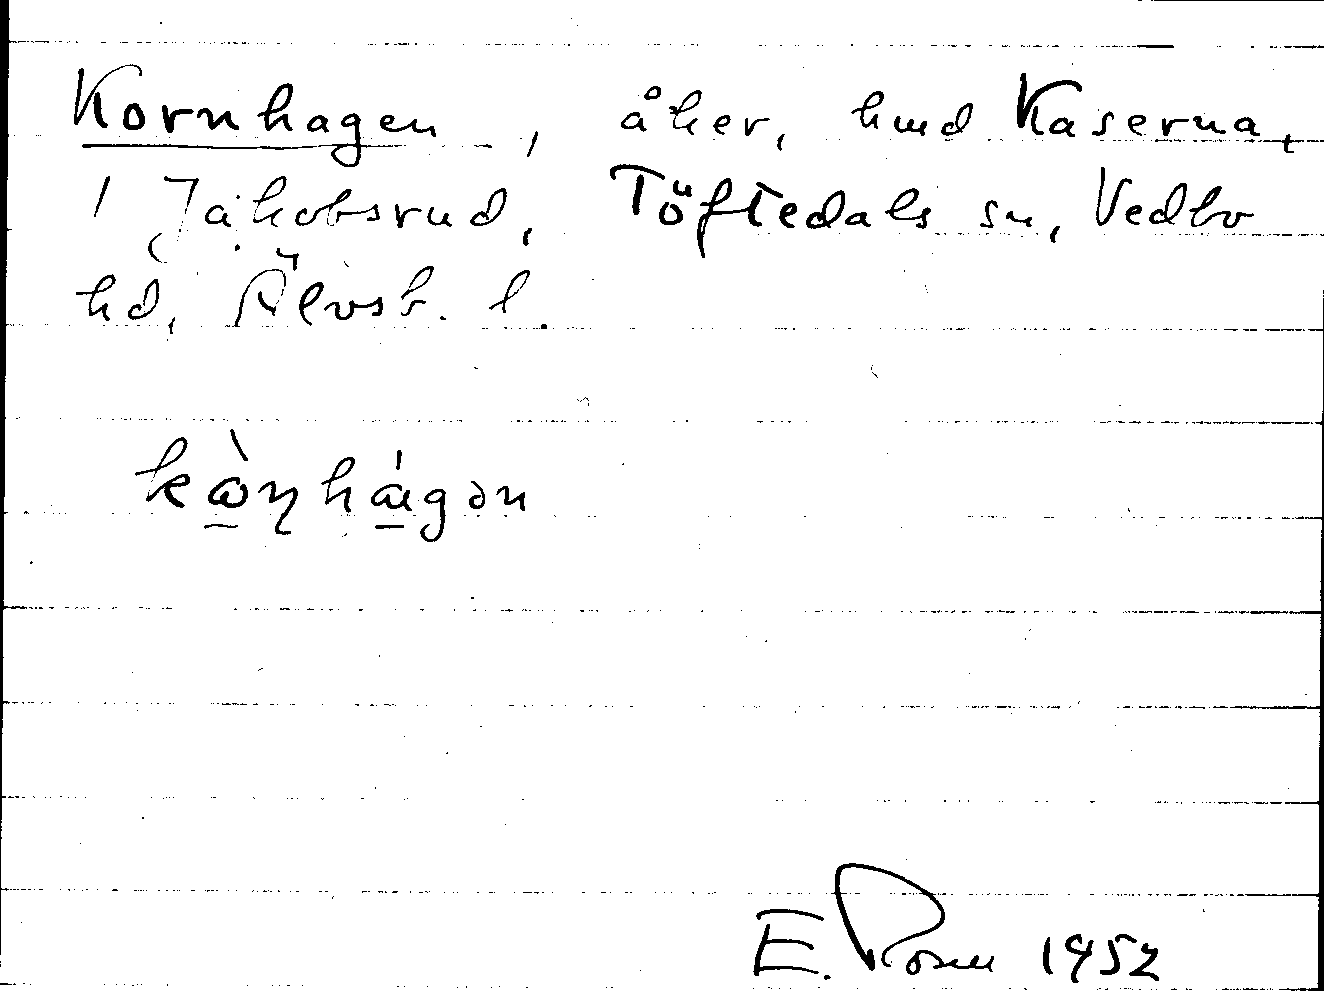 Kornhagen, åker, hmd Kaserna,
1 Jakobsrud, Töftedals sn, Vedbo
hd, Älvsb. l.
E. Rosell 1952